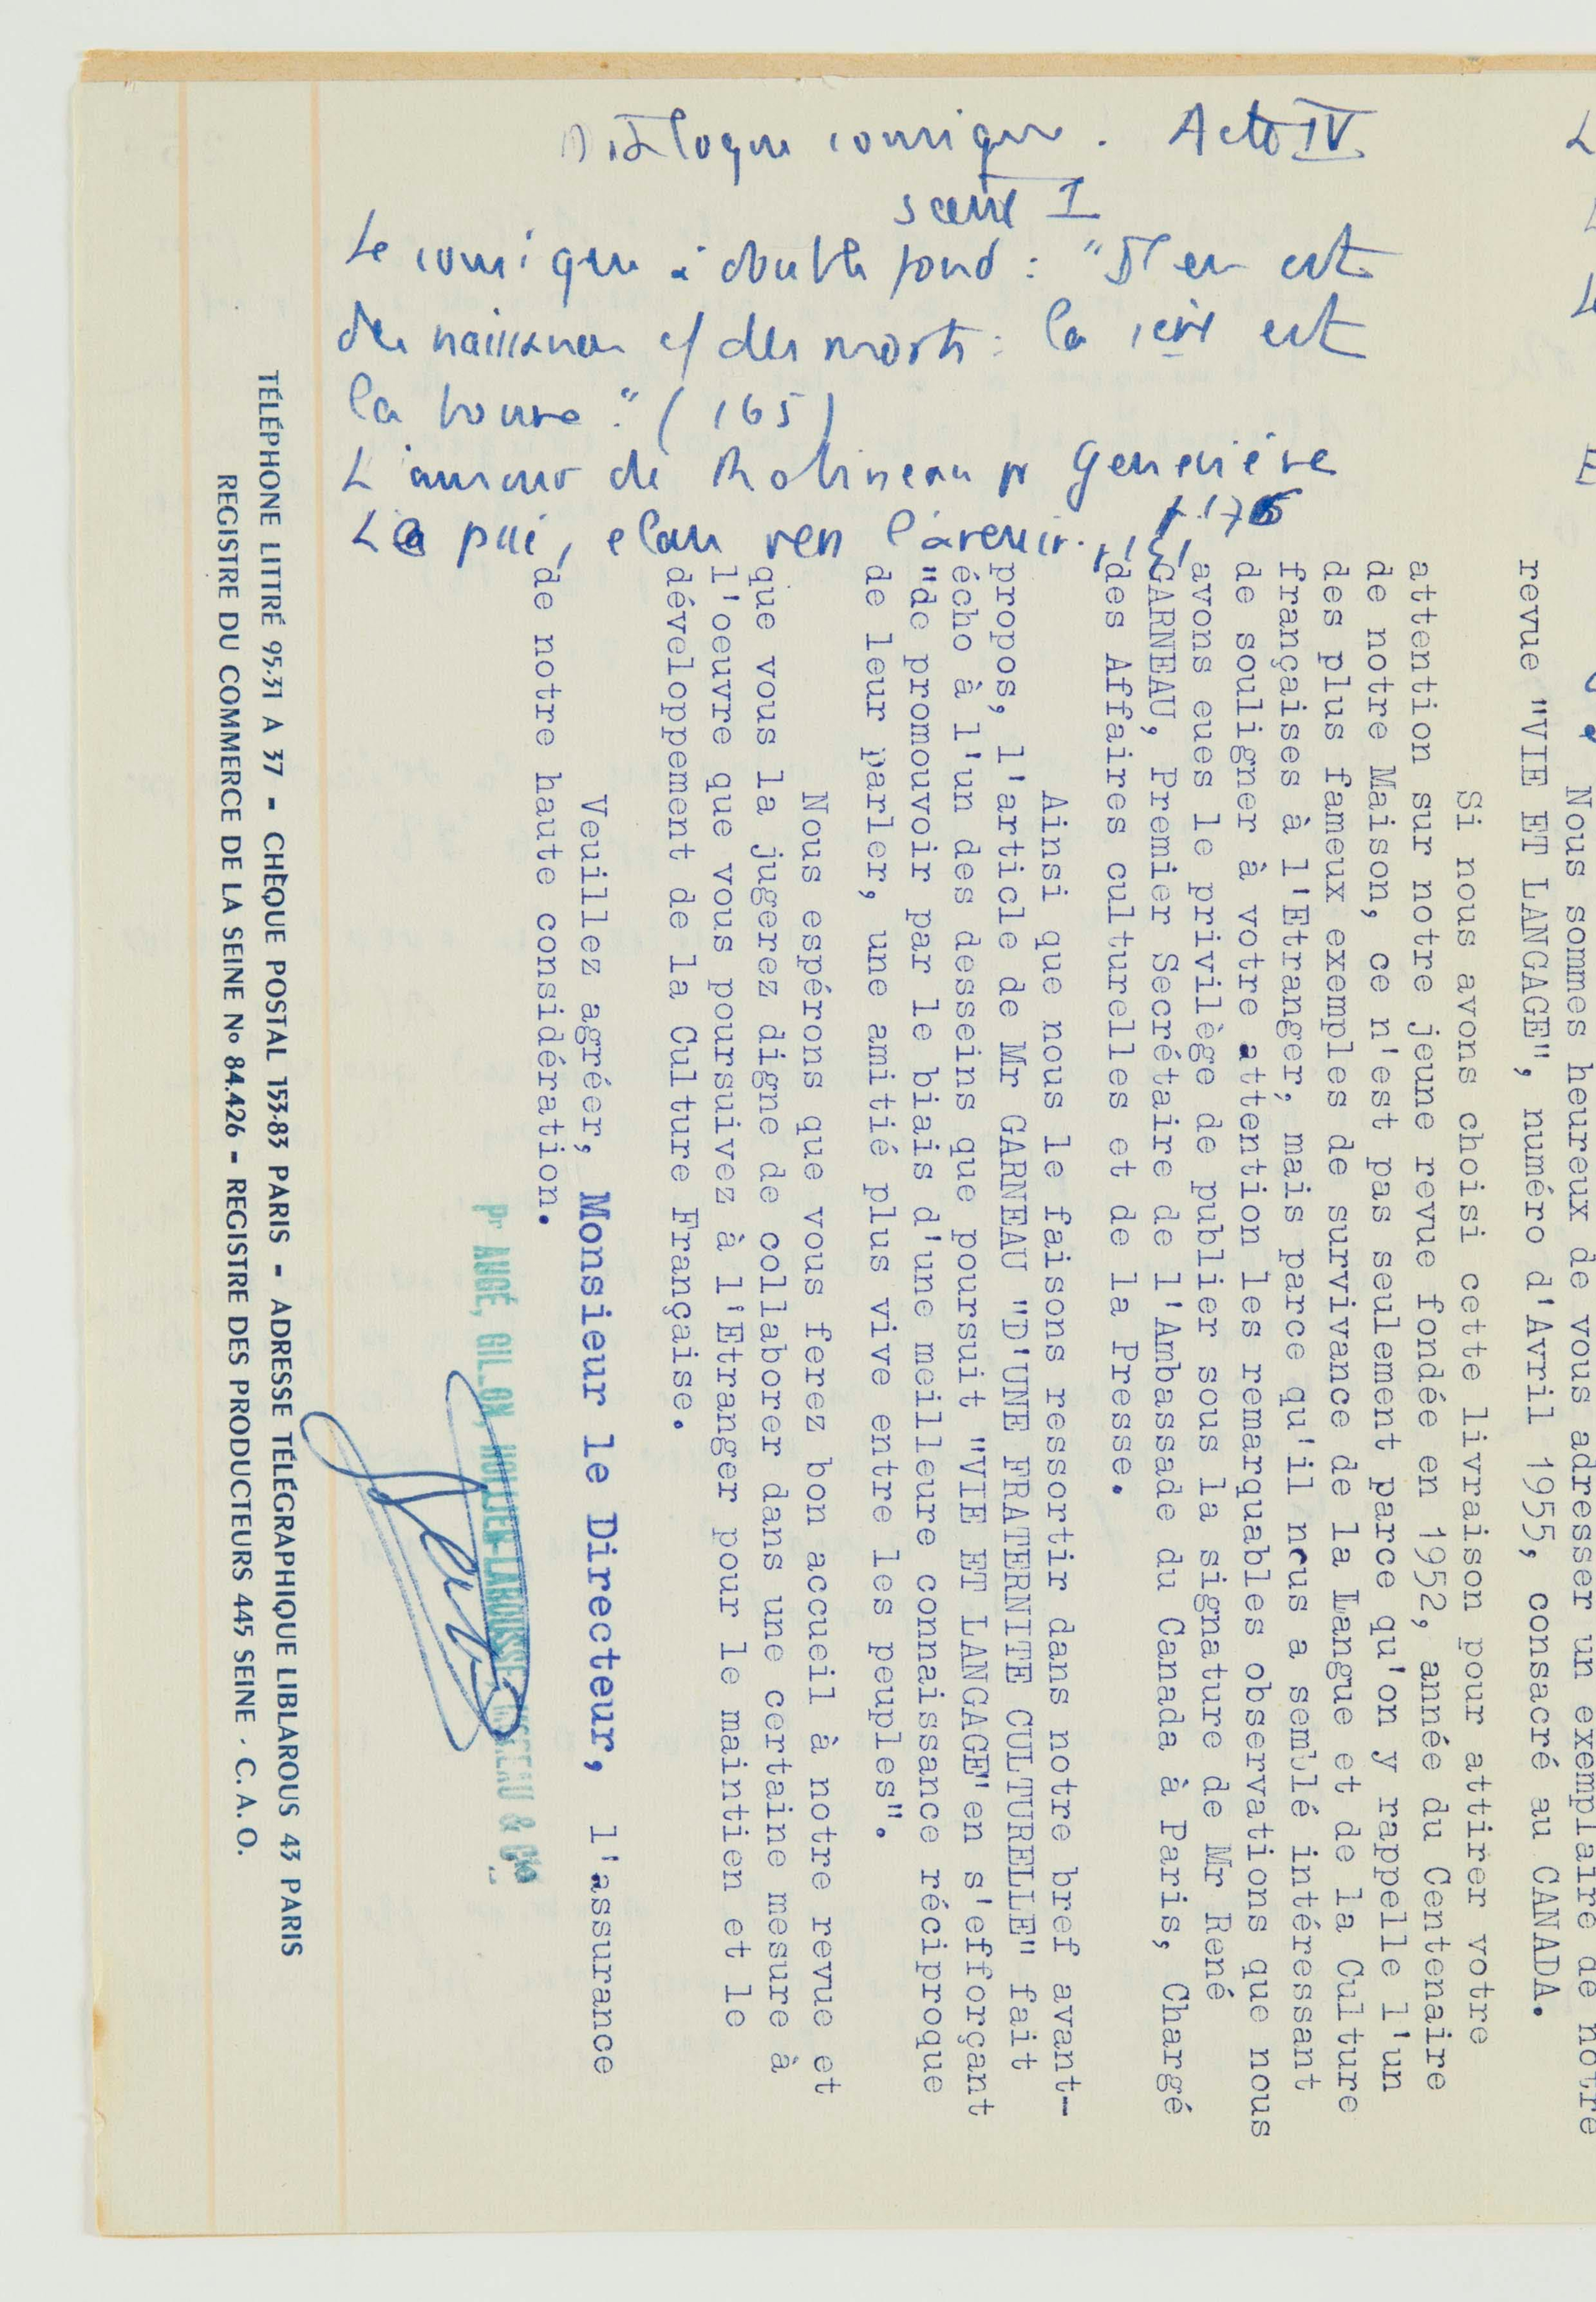 Dialogue comique. Acte IV
scène I
Le comique à double fond : "Il en est
des naissances c/ des morts : la 1ère est
la bonne." (165)
L'amour de Robineau pr Geneviève
La paix, élan vers l'avenir...
Nous sommes heureux de vous adresser un exemplaire de notre
revue "VIE ET LANGAGE", numéro d'Avril 1955, consacré au CANADA.
Si nous avons choisi cette livraison pour attirer votre
attention sur notre jeune revue fondée en 1952, année du Centenaire
de notre Maison, ce n'est pas seulement parce qu'on y rappelle l'un
des plus fameux exemples de survivance de la Langue et de la Culture
françaises à l'Etranger; mais parce qu'il nous a semblé intéressant
de souligner à votre attention les remarquables observations que nous
avons eues le privilège de publier sous la signature de Mr René
GARNEAU, Premier Secrétaire de l'Ambassade du Canada à Paris, Chargé
des Affaires culturelles et de la Presse.
Ainsi que nous le faisons ressortir dans notre bref avant-
propos, l'article de Mr GARNEAU "D'UNE FRATERNITE CULTURELLE" fait
écho à l'un des desseins que poursuit "VIE ET LANGAGE" en s'efforçant
"de promouvoir par le biais d'une meilleure connaissance réciproque
de leur parler, une amitié plus vive entre les peuples".
Nous espérons que vous ferez bon accueil à notre revue et
que vous la jugerez digne de collaborer dans une certaine mesure à
l'oeuvre que vous poursuivez à l'Etranger pour le maintien et le
développement de la Culture Française.
Veuillez agréer, Monsieur le Directeur, l'assurance
de notre haute considération.
Pr AUGÉ, GILLON, HOLLIER-LAROUSSE, MOREAU & Cie
TÉLÉPHONE LITTRÉ 95-31 A 37 - CHÈQUE POSTAL 153-83 PARIS - ADRESSE TÉLÉGRAPHIQUE LIBLAROUS 43 PARIS
REGISTRE DU COMMERCE DE LA SEINE No 84.426 - REGISTRE DES PRODUCTEURS 445 SEINE - C. A. O.